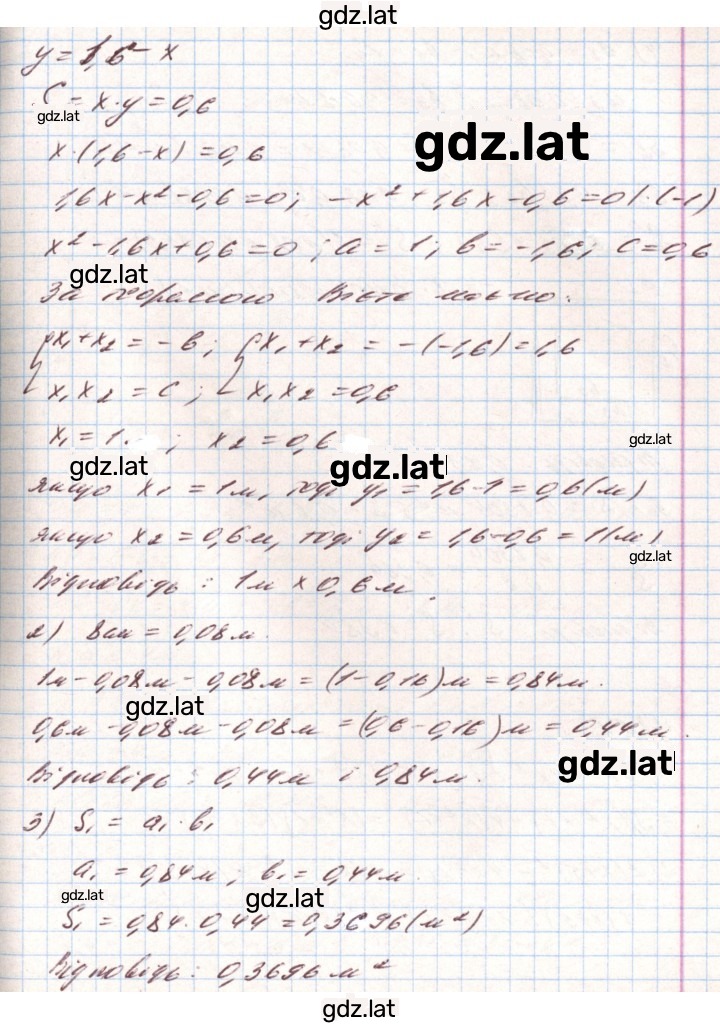 gdz.lat
y = 1,6 - x
S = x·y = 0,6
gdz.lat
gdz.lat
x·(1,6-x) = 0,6
1,6x-x²-0,6=0; -x²+1,6x-0,6=0/·(-1)
x²-1,6x+0,6=0; a=1; b=-1,6; c=0,6
gdz.lat
За теоремою Вієта маємо:
{x₁+x₂ = -b; {x₁+x₂ = -(-1,6)=1,6
x₁x₂ = c; x₁x₂ = 0,6
x₁ = 1; x₂ = 0,6
gdz.lat
gdz.lat
gdz.lat
якщо x₁ = 1м, тоді y₁ = 1,6-1 = 0,6(м)
якщо x₂ = 0,6м, тоді y₂ = 1,6-0,6 = 1(м)
gdz.lat
Відповідь: 1м × 0,6м.
2) 8см = 0,08м.
1м - 0,08м - 0,08м = (1-0,16)м = 0,84м.
gdz.lat
0,6м - 0,08м - 0,08м = (0,6-0,16)м = 0,44м.
gdz.lat
Відповідь: 0,44м і 0,84м.
3) S₁ = a₁·b₁
a₁ = 0,84м; b₁ = 0,44м.
gdz.lat
gdz.lat
S₁ = 0,84·0,44 = 0,3696(м²)
Відповідь: 0,3696м²
gdz.lat